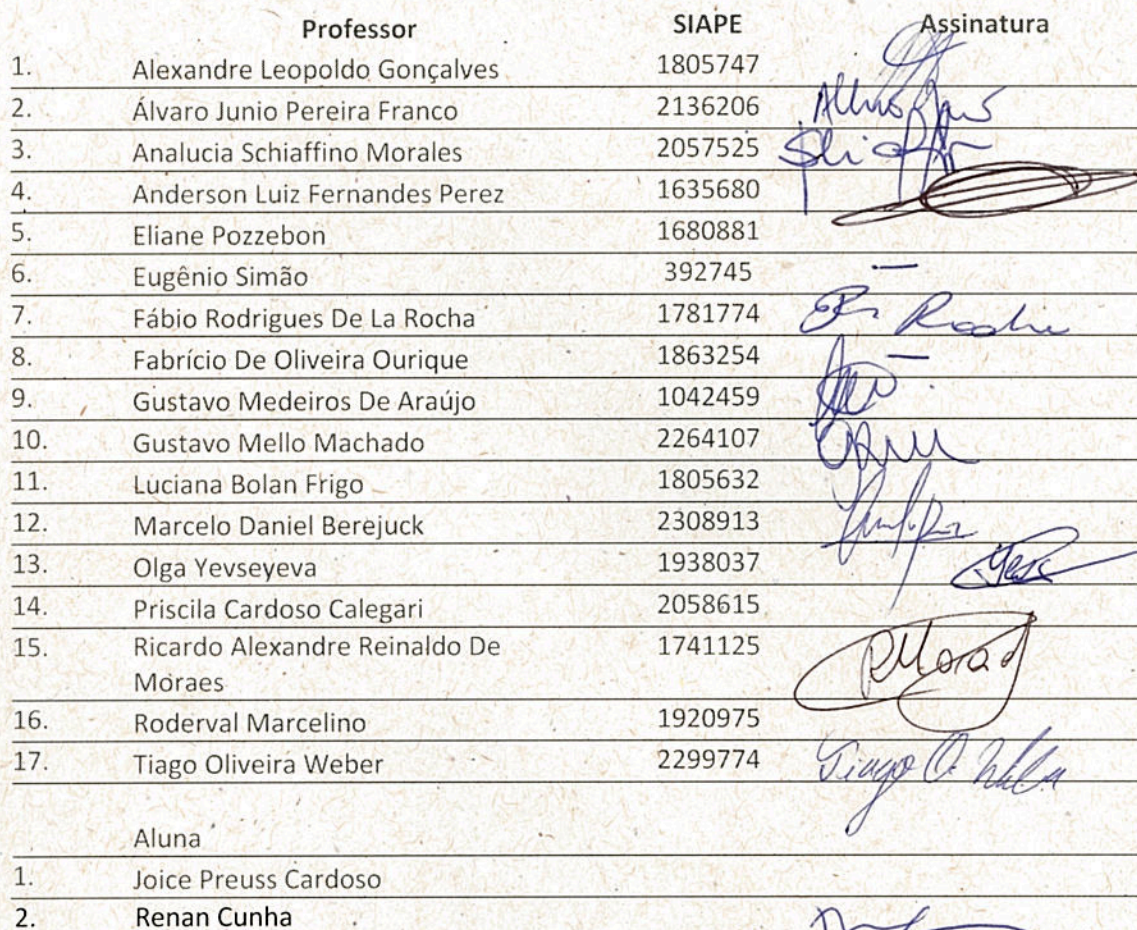 Professor SIAPE Assinatura
1. Alexandre Leopoldo Gonçalves 1805747
2. Álvaro Junio Pereira Franco 2136206
3. Analucia Schiaffino Morales 2057525
4. Anderson Luiz Fernandes Perez 1635680
5. Eliane Pozzebon 1680881
6. Eugênio Simão 392745 —
7. Fábio Rodrigues De La Rocha 1781774 Rocha
8. Fabrício De Oliveira Ourique 1863254 —
9. Gustavo Medeiros De Araújo 1042459
10. Gustavo Mello Machado 2264107
11. Luciana Bolan Frigo 1805632
12. Marcelo Daniel Berejuck 2308913
13. Olga Yevseyeva 1938037
14. Priscila Cardoso Calegari 2058615
15. Ricardo Alexandre Reinaldo De 1741125
Moraes
16. Roderval Marcelino 1920975
17. Tiago Oliveira Weber 2299774 Tiago O. Weber
Aluna
1. Joice Preuss Cardoso
2. Renan Cunha